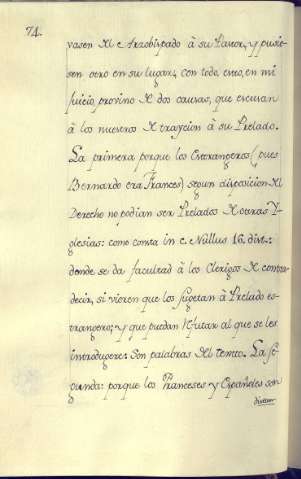 74.
vasen del e Arzobispado à su Pastor, y pusie-
sen otro en su lugar, con todo, creo, en mi
juicio, provino de dos causas, que escusan
à los nuestros de traycion à su Prelado.
La primera porque los Extrangeros (pues
Bernardo era Frances) segun disposicion del
Derecho no podian ser Prelados de otras Y-
glesias: como consta in c. Nullus 16. dist.:
donde se da facultad à los Clerigos de contra-
decir, si vieren que los sugetan à Prelado es-
trangero; y que puedan refutar al que se les
introdugere. Son palabras del texto. La se-
gunda: porque los Franceses y Españoles son